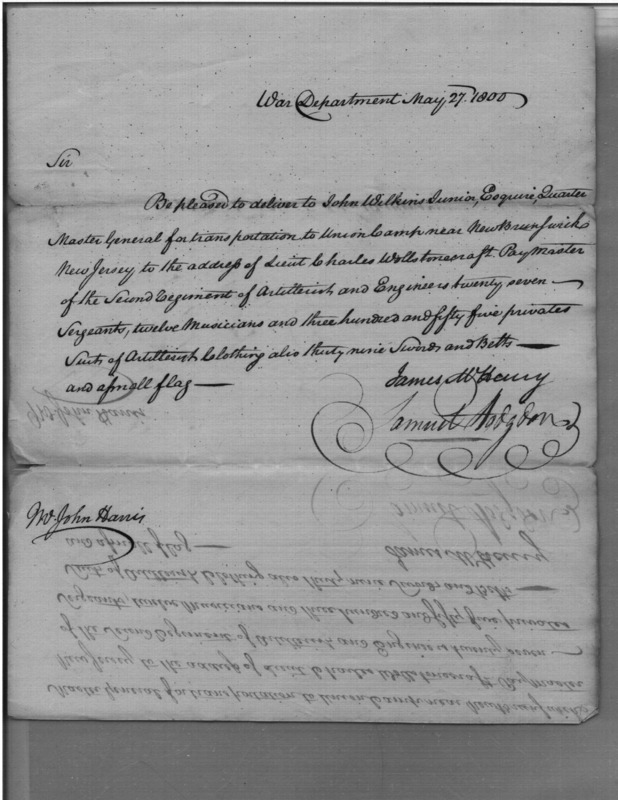 War Department May, 27. 1800
Sir
Be pleased to deliver to John Wilkins Junior, Esquire, Quarter
Master General for transportation to Union Camp near New Brunswick
New Jersey to the address of Lieut Charles Wollstonecraft Pay Master
of the Second Regiment of Artillerist and Engineers twenty seven —
Sergeants, twelve Musicians and three hundred and fifty five privates
Suits of Artillerist Clothing also thirty nine Swords and Belts —
and a small flag —
James McHenry
Samuel Hodgdon
Mr. John Harris